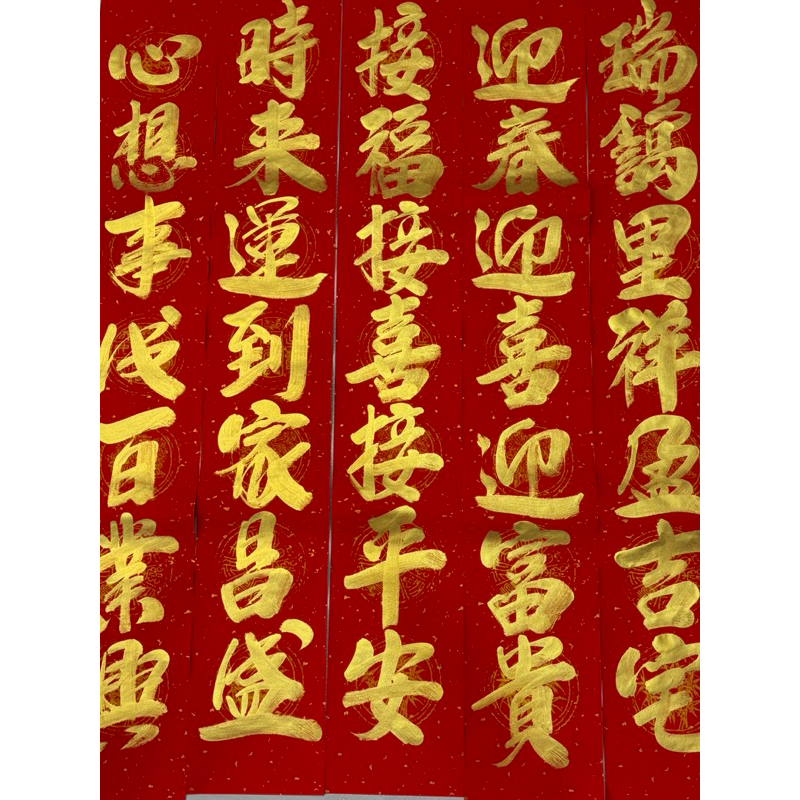 瑞 里祥盈吉宅
迎春迎喜迎富貴
接福接喜接平安
時来運到家昌盛
心想事成百業興